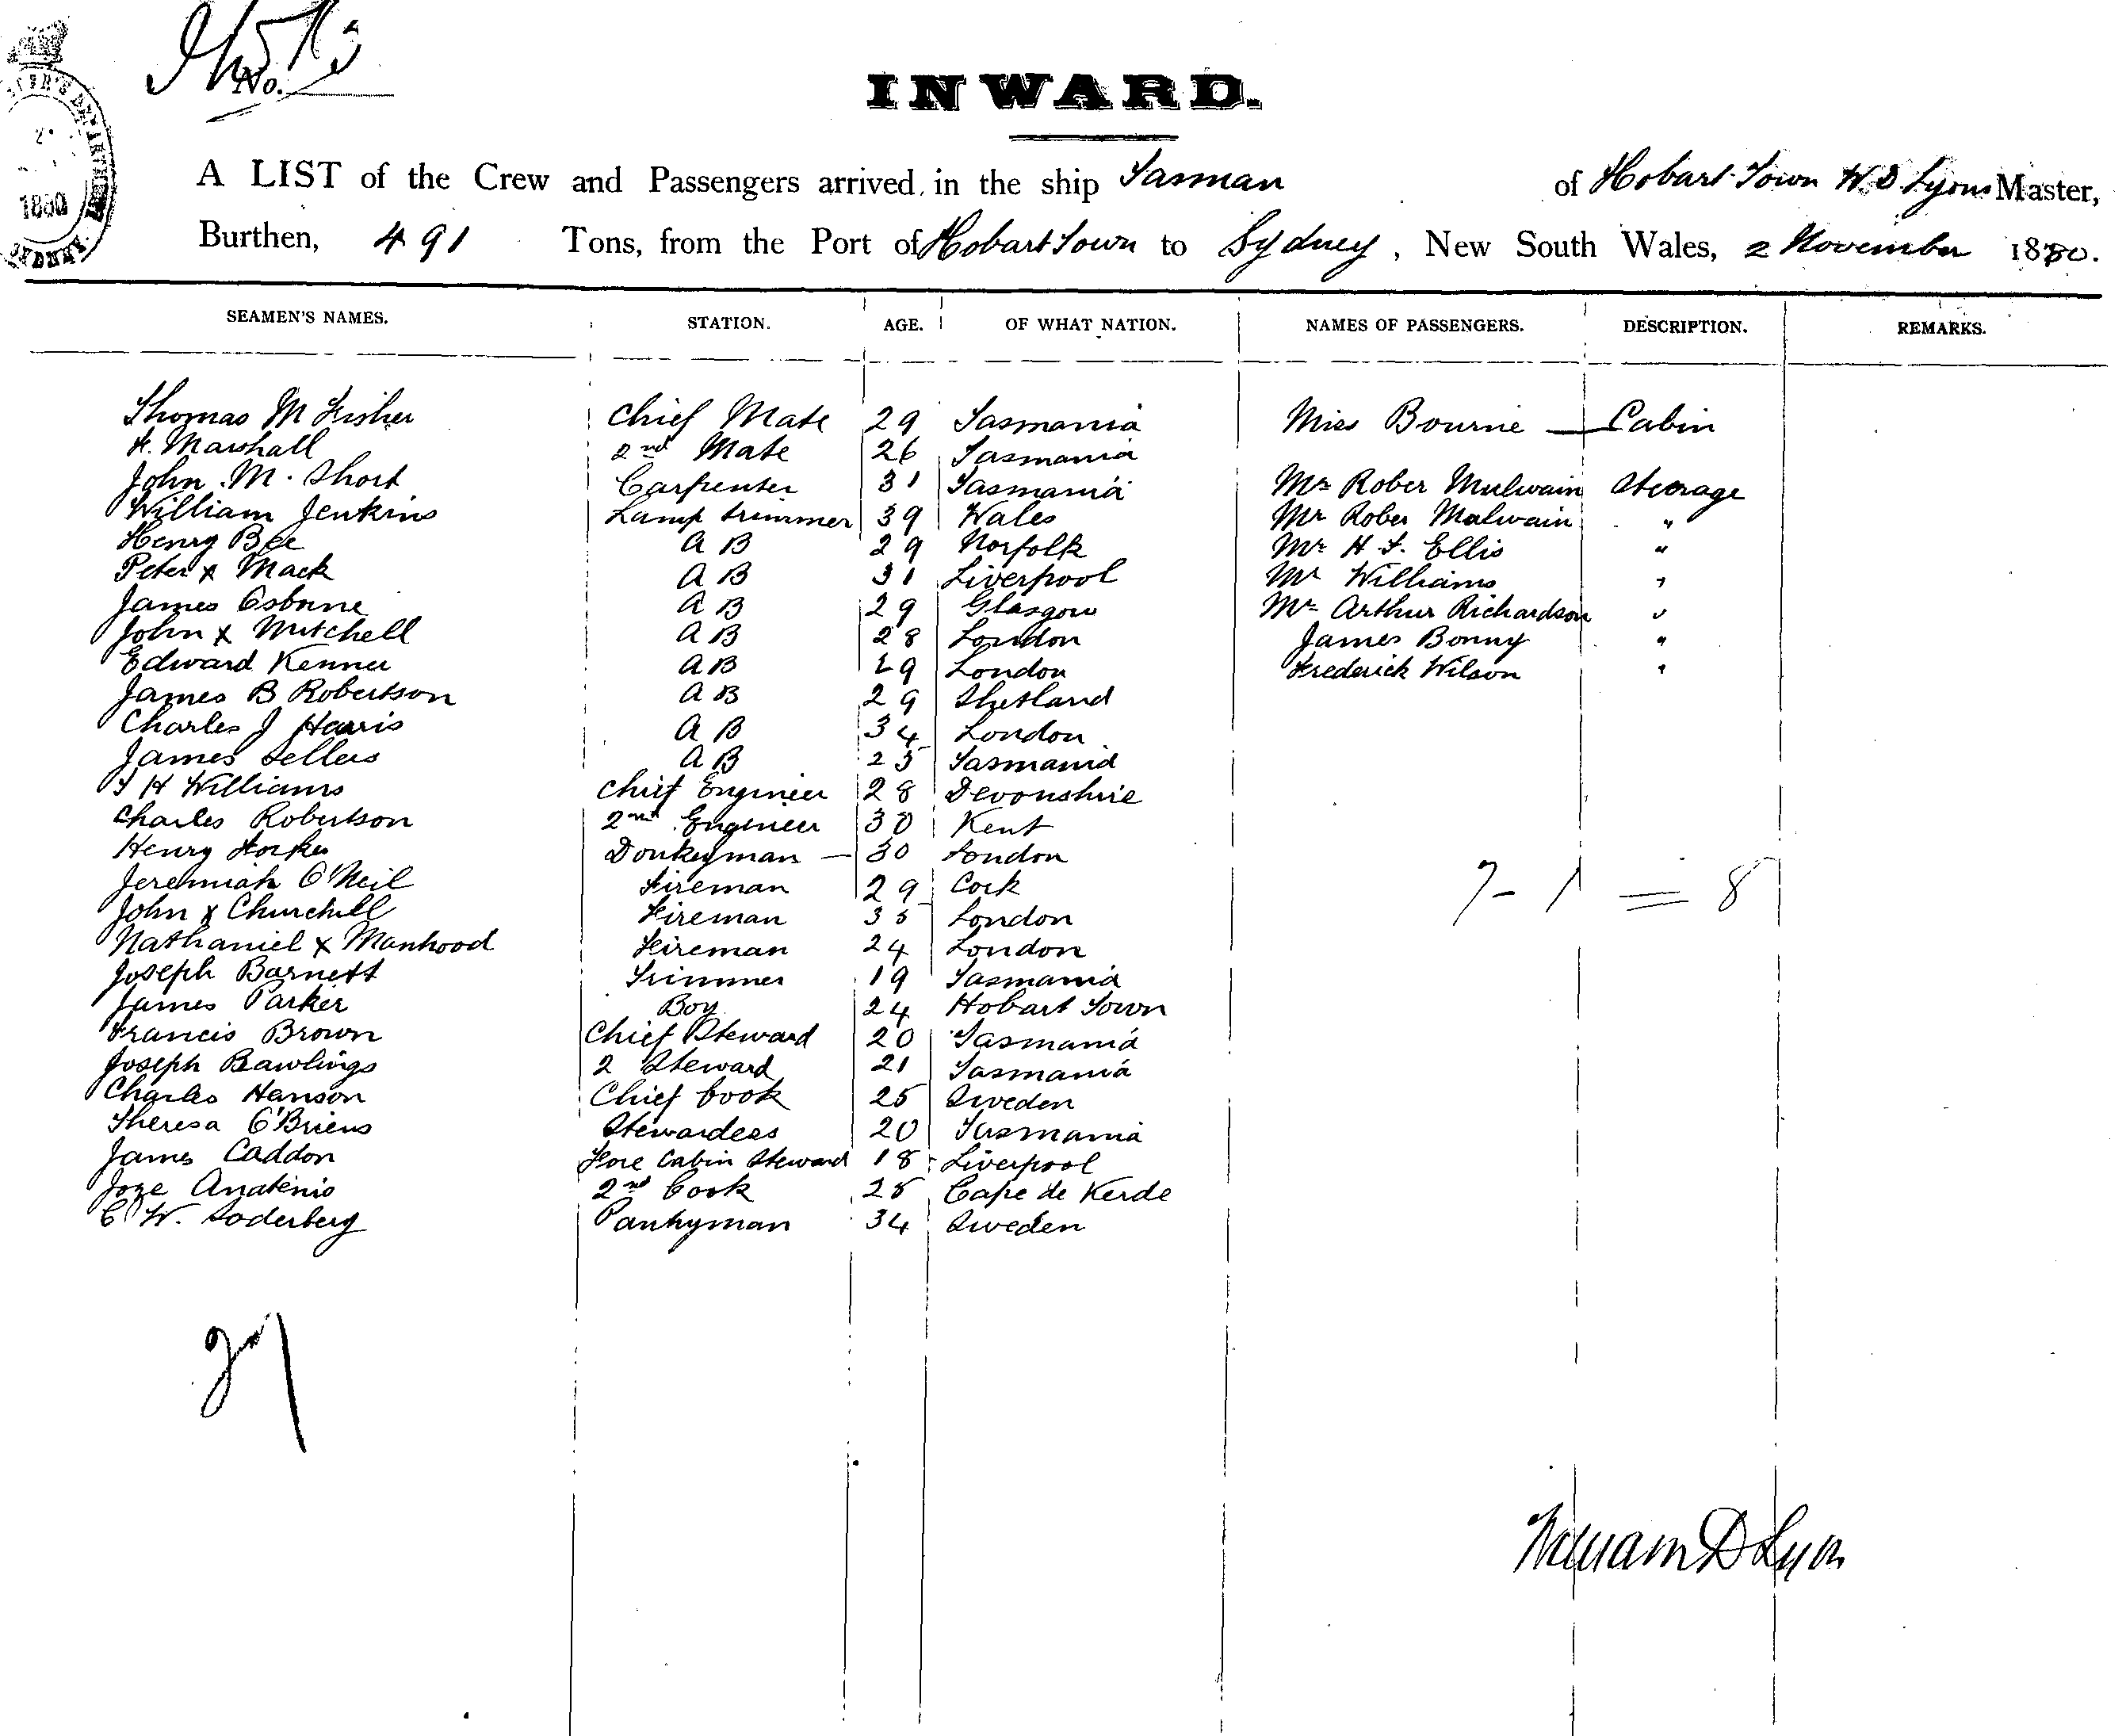 No.
INWARD.
1880
SYDNEY.
A LIST of the Crew and Passengers arrived in the ship Tasman of Hobart Town W.D Lyons Master,
Burthen, 491 Tons, from the Port of Hobart Town to Sydney, New South Wales, 2 November 1880.
SEAMEN'S NAMES. STATION. AGE. OF WHAT NATION. NAMES OF PASSENGERS. DESCRIPTION. REMARKS.
Thomas M Fisher Chief Mate 29 Tasmania Miss Bourne — Cabin
H. Marshall 2nd Mate 26 Tasmania
John . M . Short Carpenter 31 Tasmania Mr Rober Mulwain Steerage
William Jenkins Lamp trimmer 39 Wales Mr Rober Malwain "
Henry Bee A B 29 Norfolk Mr H. F. Ellis "
Peter x Mack A B 31 Liverpool Mr Williams "
James Osborne A B 29 Glasgow Mr Arthur Richardson "
John x Mitchell A B 28 London James Bonny "
Edward Kenner A B 29 London Frederick Wilson "
James B Robertson A B 29 Shetland
Charles J Harris A B 34 London
James Sellers A B 25 Tasmania
T H Williams Chief Engineer 28 Devonshire
Charles Robertson 2nd Engineer 30 Kent
Henry Donkeyman — 30 London
Jeremiah O'Neil Fireman 29 Cork
John x Churchill Fireman 35 London
7 - 1 = 8
Nathaniel x Manhood Fireman 24 London
Joseph Barnett Trimmer 19 Tasmania
James Parker Boy 24 Hobart Town
Francis Brown Chief Steward 20 Tasmania
Joseph Rawlings 2 Steward 21 Tasmania
Charles Hanson Chief Cook 25 Sweden
Theresa O'Briens Stewardess 20 Tasmania
James Caddon Fore Cabin Steward 18 Liverpool
Joze Anatenio 2nd Cook 28 Cape de Verde
C W. Soderberg Pantryman 34 Sweden
27
William D Lyons